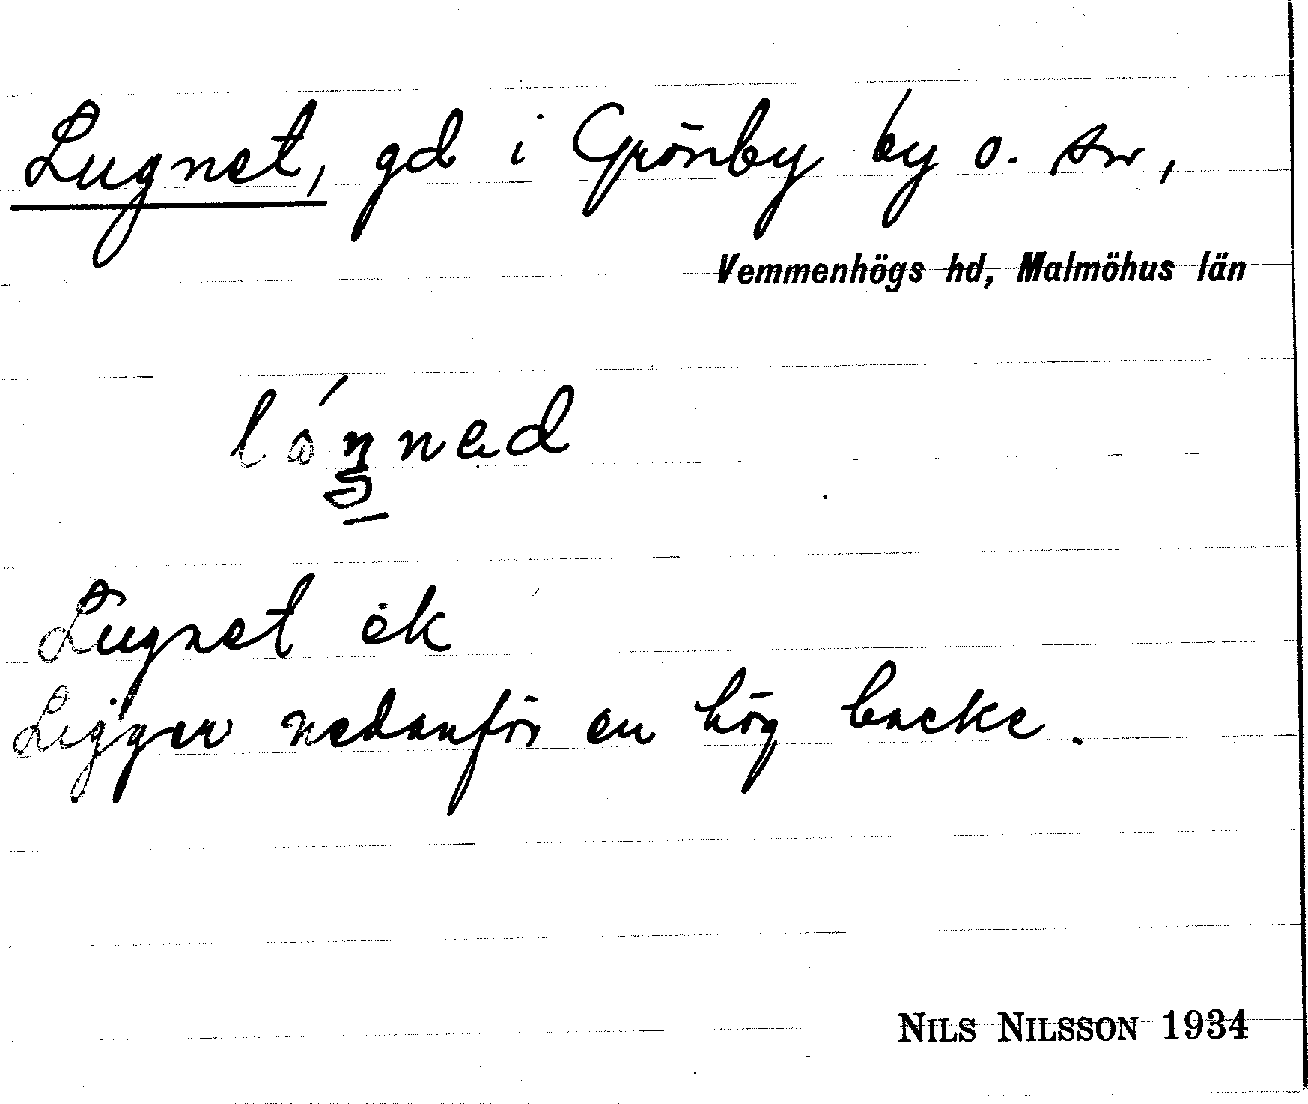 Lugnet, gd i Grönby by o. sn,
Vemmenhögs hd, Malmöhus län
Lugnet ek
Ligger nedanför en hög backe.
NILS NILSSON 1934